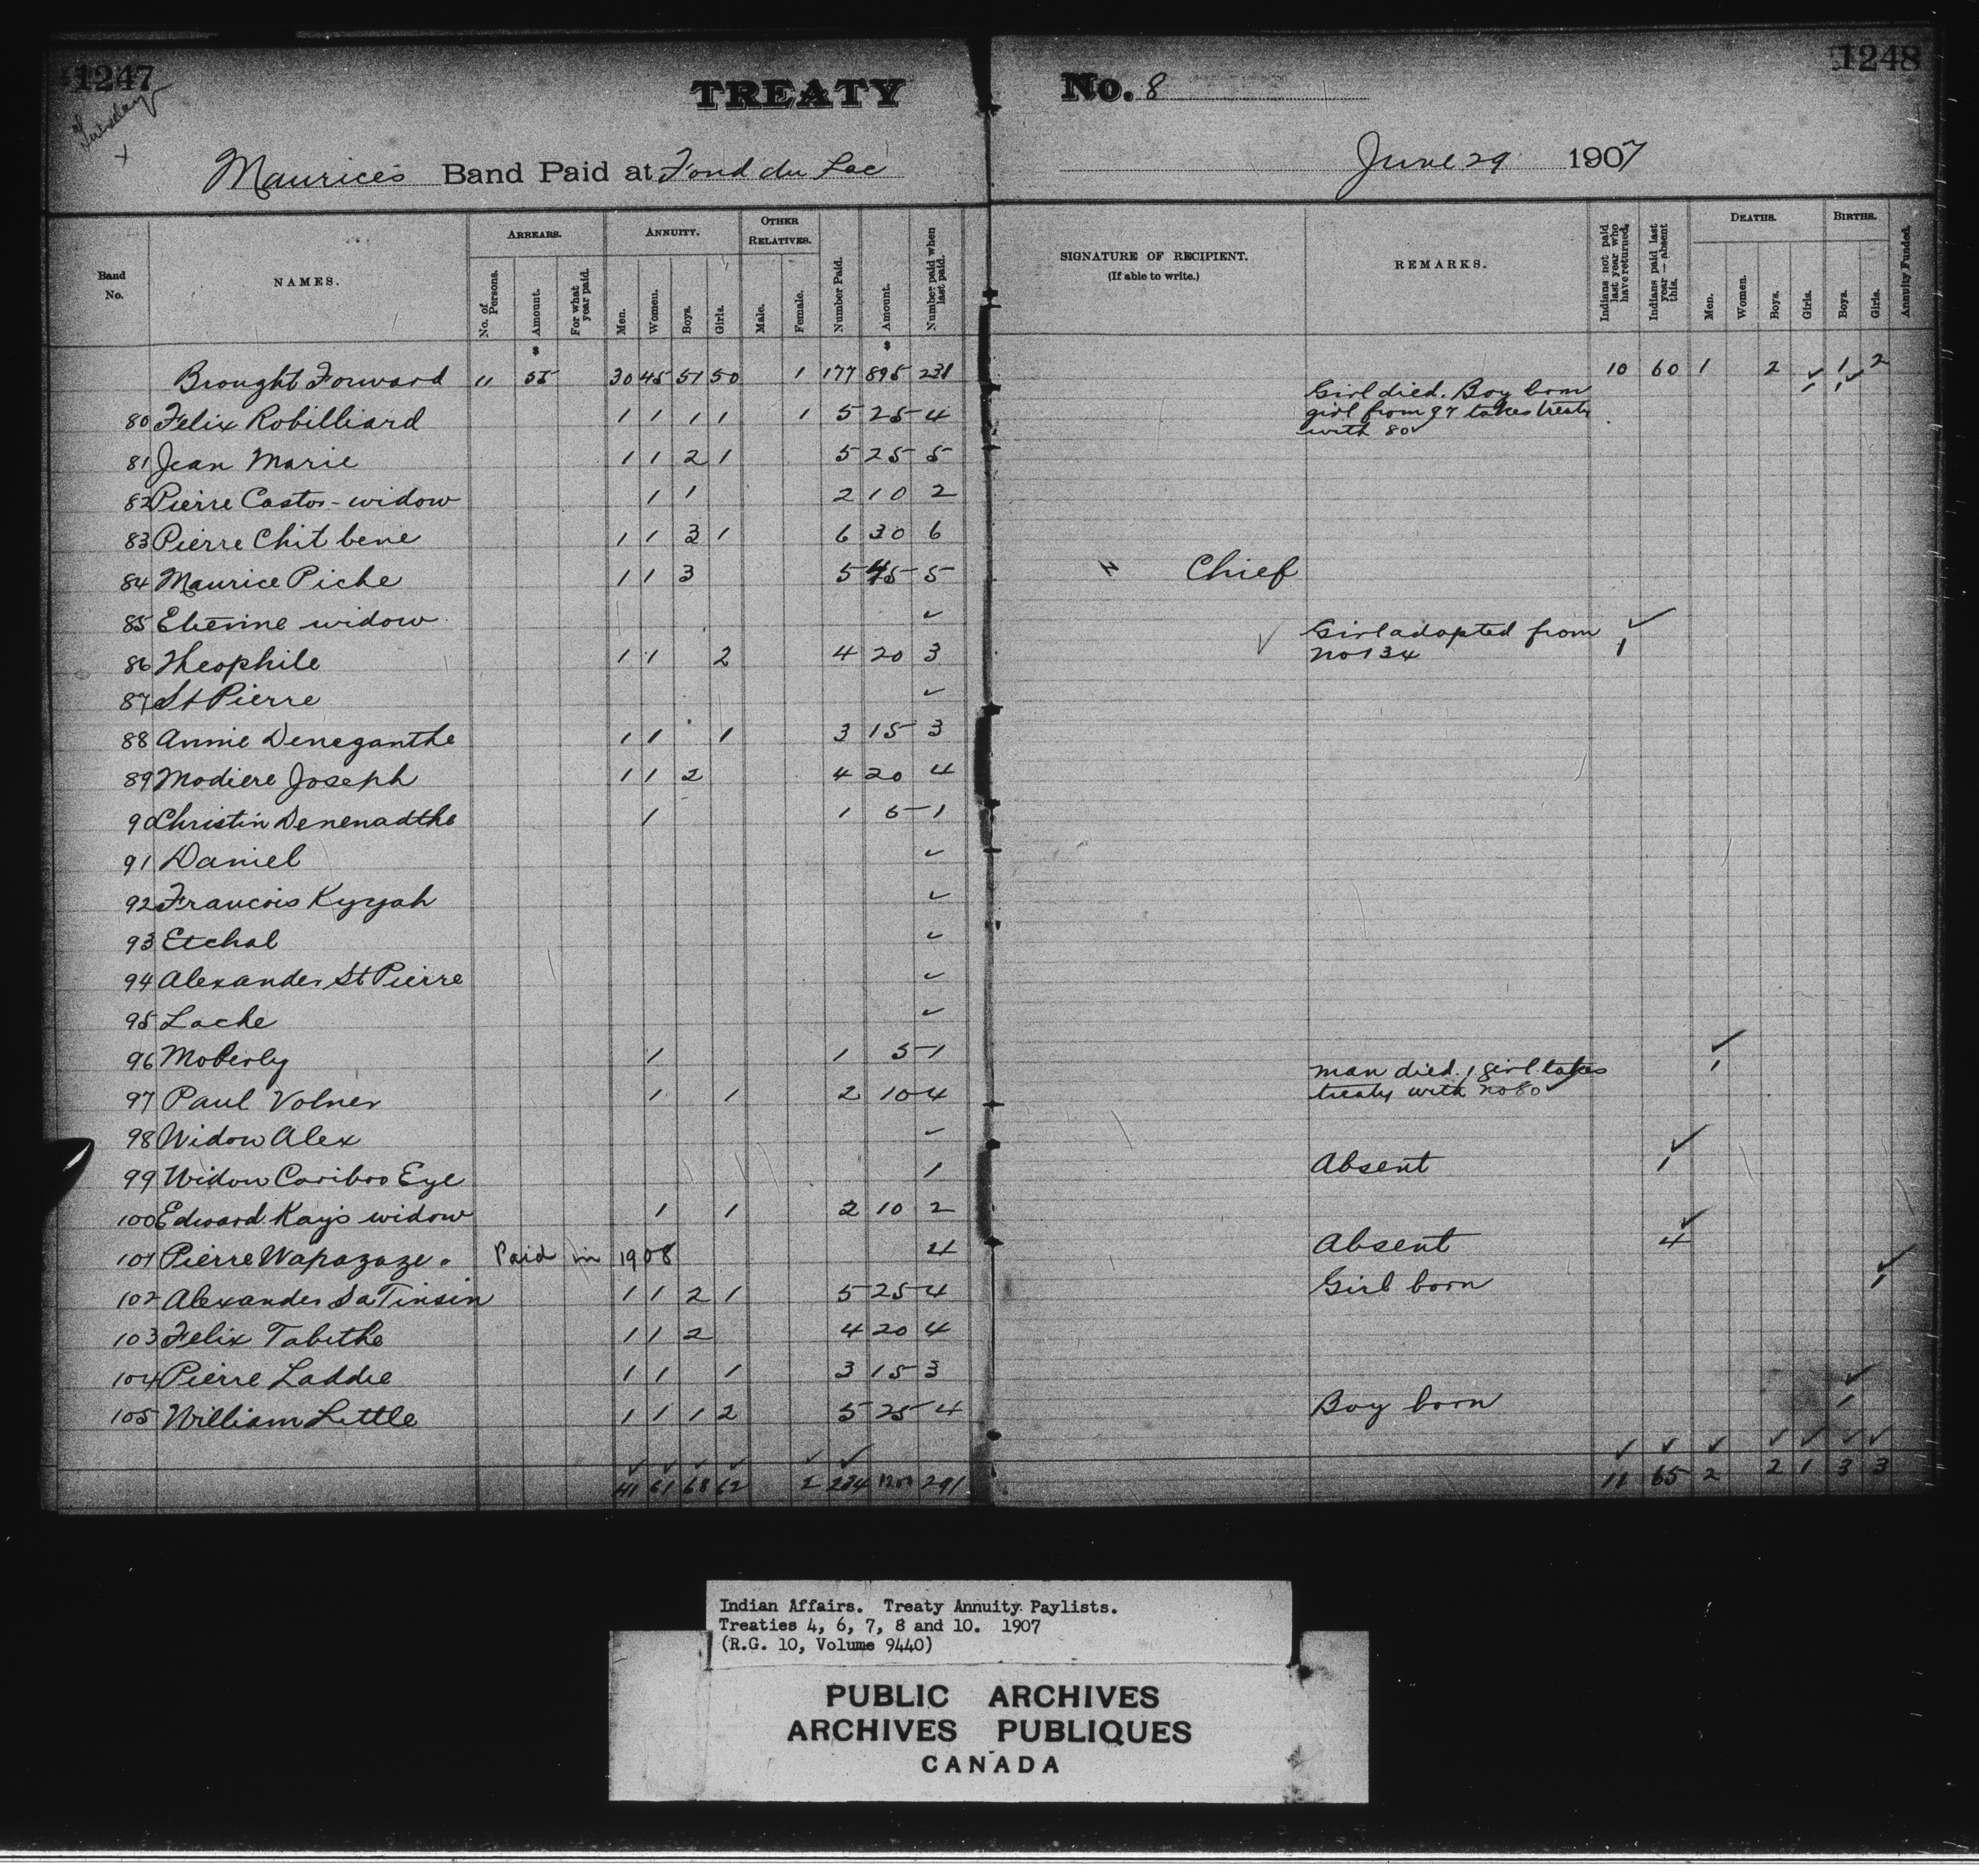 1247 TREATY No. 8 1248
Tuesday
x
Maurice's Band Paid at Fond du Lac June 29 1907
Band No. NAMES. ARREARS. No. of Persons. Amount. For what year paid. ANNUITY. Men. Women. Boys. Girls. OTHER RELATIVES. Male. Female. Number Paid. Amount. Number paid when last paid. SIGNATURE OF RECIPIENT. (If able to write.) REMARKS. Indians not paid last year who have returned. Indians paid last year — absent this. DEATHS. Men. Women. Boys. Girls. BIRTHS. Boys. Girls. Annuity Funded.
$ $
Brought Forward 11 55 30 45 51 50 1 177 895 231 10 60 1 2 1 2
80 Felix Robilliard 1 1 1 1 1 5 25 4 Girl died. Boy born ✓ 1 ✓ 1
girl from 97 takes treaty
with 80
81 Jean Marie 1 1 2 1 5 25 5
82 Pierre Castor - widow 1 1 2 10 2
83 Pierre Chit bene 1 1 3 1 6 30 6
84 Maurice Piche 1 1 3 5 45 5 Chief
85 Etienne widow ✓
86 Theophile 1 1 2 4 20 3 ✓ Girl adopted from ✓ 1
no 134
87 St Pierre ✓
88 Annie Deneganthe 1 1 1 3 15 3
89 Modiere Joseph 1 1 2 4 20 4
90 Christin Denenadthe 1 1 5 1
91 Daniel ✓
92 Francois Kyyah ✓
93 Etchal ✓
94 Alexander St Pierre ✓
95 Lache ✓
96 Moberly 1 1 5 1
97 Paul Volner 1 1 2 10 4 man died. 1 girl takes ✓ 1
treaty with no 80
98 Widow Alex ✓
99 Widow Cariboo Eye 1 Absent ✓ 1
100 Edward Kay's widow 1 1 2 10 2
101 Pierre Wapazaze. Paid in 1908 4 Absent ✓ 4
102 Alexander SaTinsin 1 1 2 1 5 25 4 Girl born ✓ 1
103 Felix Tabithe 1 1 2 4 20 4
104 Pierre Laddie 1 1 1 3 15 3
105 William Little 1 1 1 2 5 25 4 Boy born ✓ 1
✓ ✓ ✓ ✓ ✓ ✓ ✓ ✓ ✓ ✓ ✓ ✓ ✓
41 61 68 62 2 234 291 11 65 2 2 1 3 3
Indian Affairs. Treaty Annuity Paylists.
Treaties 4, 6, 7, 8 and 10. 1907
(R.G. 10, Volume 9440)
PUBLIC ARCHIVES
ARCHIVES PUBLIQUES
CANADA